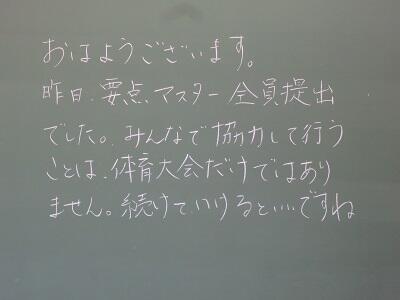 おはようございます。
昨日、要点マスター全員提出
でした。みんなで協力して行う
ことは、体育大会だけではあり
ません。続けていけるといいですね